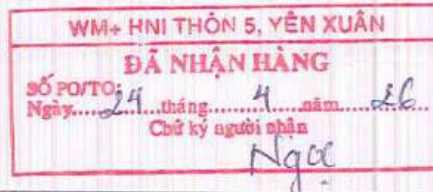 WM+ HNI THÔN 5, YÊN XUÂN
ĐÃ NHẬN HÀNG
SỐ PO/TO:
Ngày.....24...tháng.........4.....năm...26...
Chữ ký người nhận
Ngọc